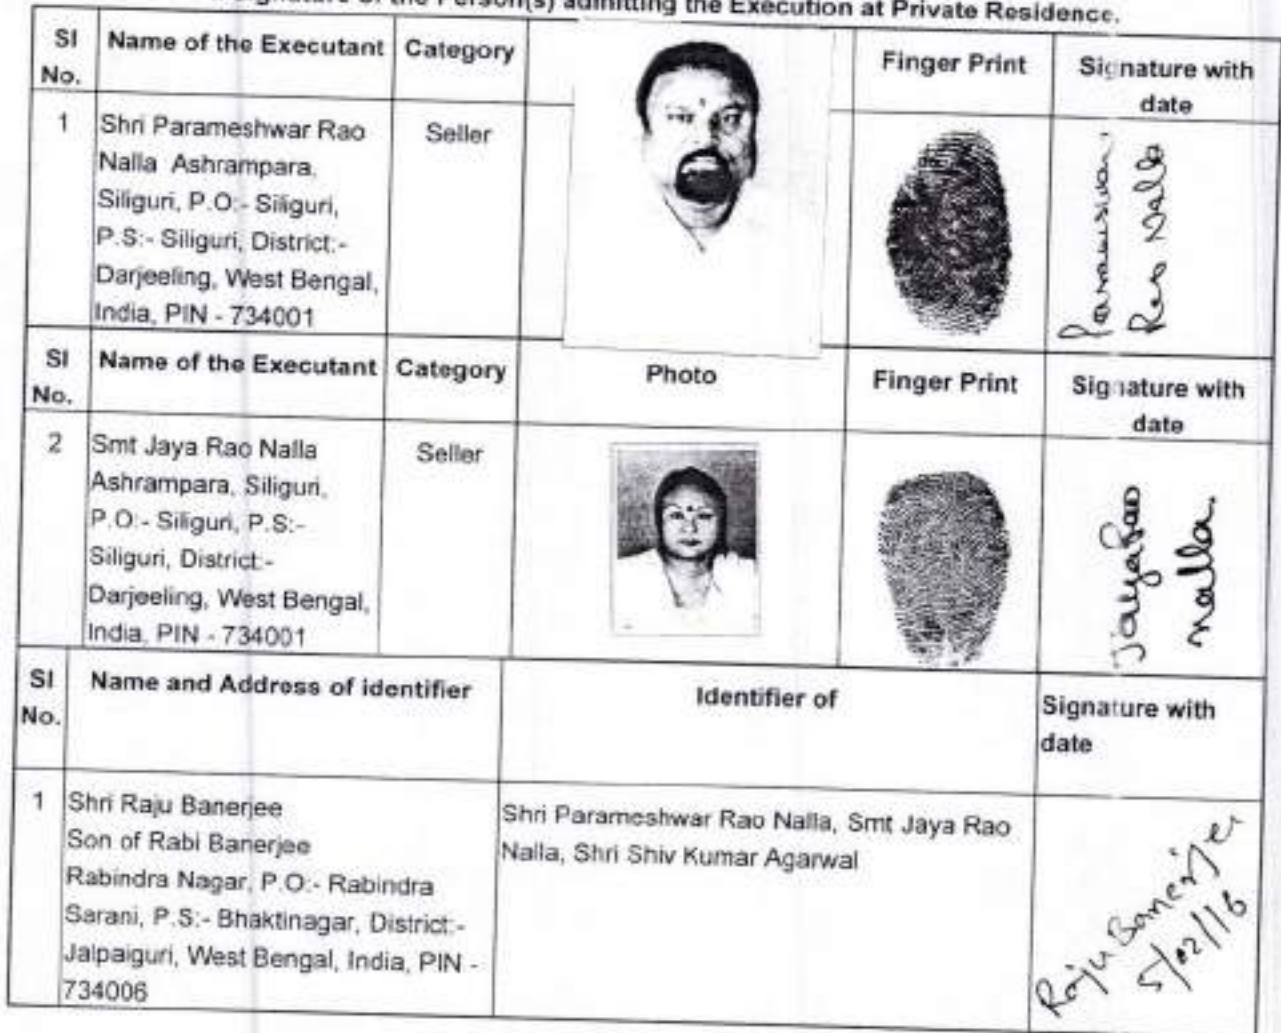 Signature of the Person(s) admitting the Execution at Private Residence.
Sl No.
Name of the Executant
Category
Finger Print
Signature with date
1
Shri Parameshwar Rao
Nalla Ashrampara,
Siliguri, P.O:- Siliguri,
P.S:- Siliguri, District:-
Darjeeling, West Bengal,
India, PIN - 734001
Seller
Rao Nalla
Sl No.
Name of the Executant
Category
Photo
Finger Print
Signature with date
2
Smt Jaya Rao Nalla
Ashrampara, Siliguri,
P.O:- Siliguri, P.S:-
Siliguri, District:-
Darjeeling, West Bengal,
India, PIN - 734001
Seller
Jaya Rao
Nalla.
Sl No.
Name and Address of identifier
Identifier of
Signature with
date
1
Shri Raju Banerjee
Son of Rabi Banerjee
Rabindra Nagar, P.O:- Rabindra
Sarani, P.S:- Bhaktinagar, District:-
Jalpaiguri, West Bengal, India, PIN -
734006
Shri Parameshwar Rao Nalla, Smt Jaya Rao
Nalla, Shri Shiv Kumar Agarwal
Raju Banerjee
5/02/16